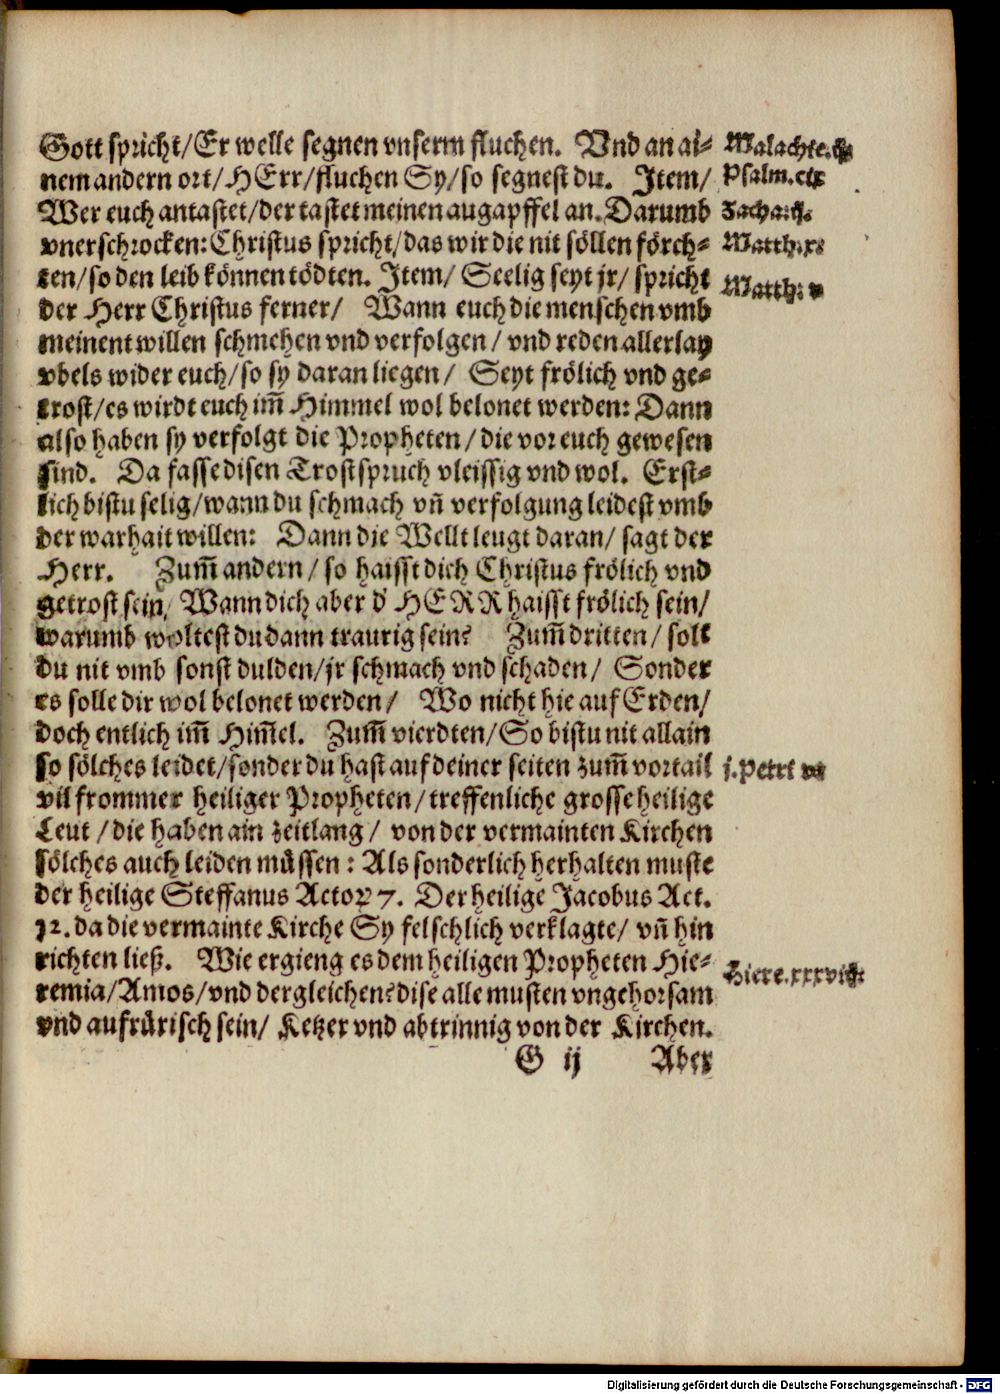 Gott spricht/Er welle segnen vnserm fluchen. Vnd an ai-
nem andern ort/HErr/fluchen Sy/so segnest du. Item/
Wer euch antastet/der tastet meinen augapffel an. Darumb
vnerschrocken: Christus spricht/das wir die nit söllen förch-
ten/so den leib können tödten. Item/ Seelig seyt jr/ spricht
der Herr Christus ferner/ Wann euch die menschen vmb
meinent willen schmehen vnd verfolgen/ vnd reden allerlay
vbels wider euch/so sy daran liegen/ Seyt frölich vnd ge-
trost/es wirdt euch im̄ Himmel wol belonet werden: Dann
also haben sy verfolgt die Propheten/die vor euch gewesen
sind. Da fasse disen Trostspruch vleissig vnd wol. Erst-
lich bistu selig/wann du schmach vn̄ verfolgung leidest vmb
der warhait willen: Dann die Wellt leugt daran/ sagt der
Herr. Zum̄ andern/ so haisst dich Christus frölich vnd
getrost sein/ Wann dich aber d' HERR haisst frölich sein/
warumb woltest du dann traurig sein? Zum̄ dritten/ solt
du nit vmb sonst dulden/jr schmach vnd schaden/ Sonder
es solle dir wol belonet werden/ Wo nicht hie auf Erden/
doch entlich im̄ Him̄el. Zum̄ vierdten/So bistu nit allain
so sölches leidet/sonder du hast auf deiner seiten zum̄ vortail
vil frommer heiliger Propheten/treffenliche grosse heilige
Leut/die haben ain zeitlang/ von der vermainten Kirchen
sölches auch leiden müssen: Als sonderlich herhalten muste
der heilige Steffanus Actoꝝ 7. Der heilige Jacobus Act.
12. da die vermainte Kirche Sy felschlich verklagte/ vn̄ hin
richten ließ. Wie ergieng es dem heiligen Propheten Hie-
remia/Amos/vnd dergleichen? dise alle musten vngehorsam
vnd aufrürisch sein/ Ketzer vnd abtrinnig von der Kirchen.
G ij Aber
Malachie. ij.
Psalm. cix
Zachar. ij.
Matth. x.
Matth. v
j. Petri
Hiere. xxxviij.
Digitalisierung gefördert durch die Deutsche Forschungsgemeinschaft - DFG